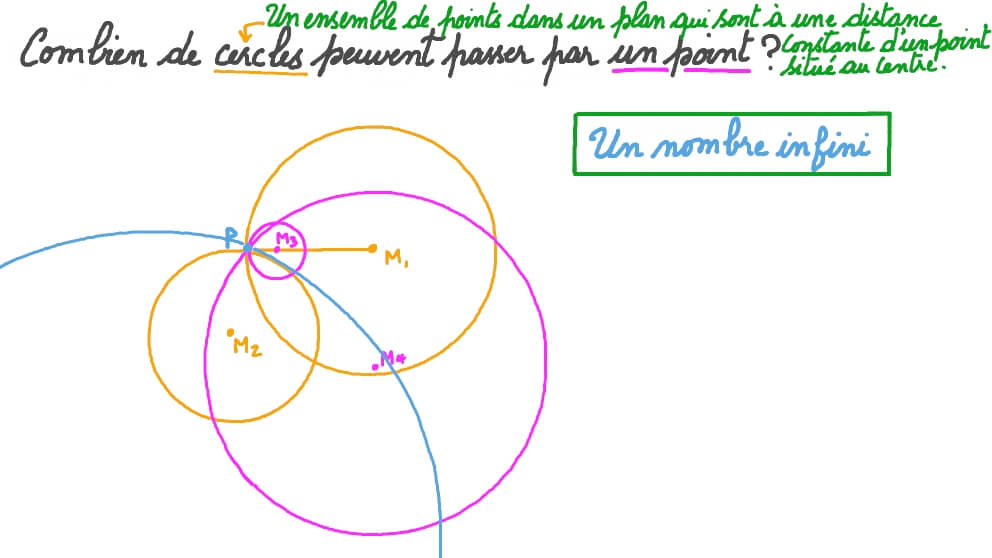 Un ensemble de points dans un plan qui sont à une distance
constante d'un point
situé au centre.
Combien de cercles peuvent passer par un point ?
Un nombre infini
P
M3
M1
M2
M4